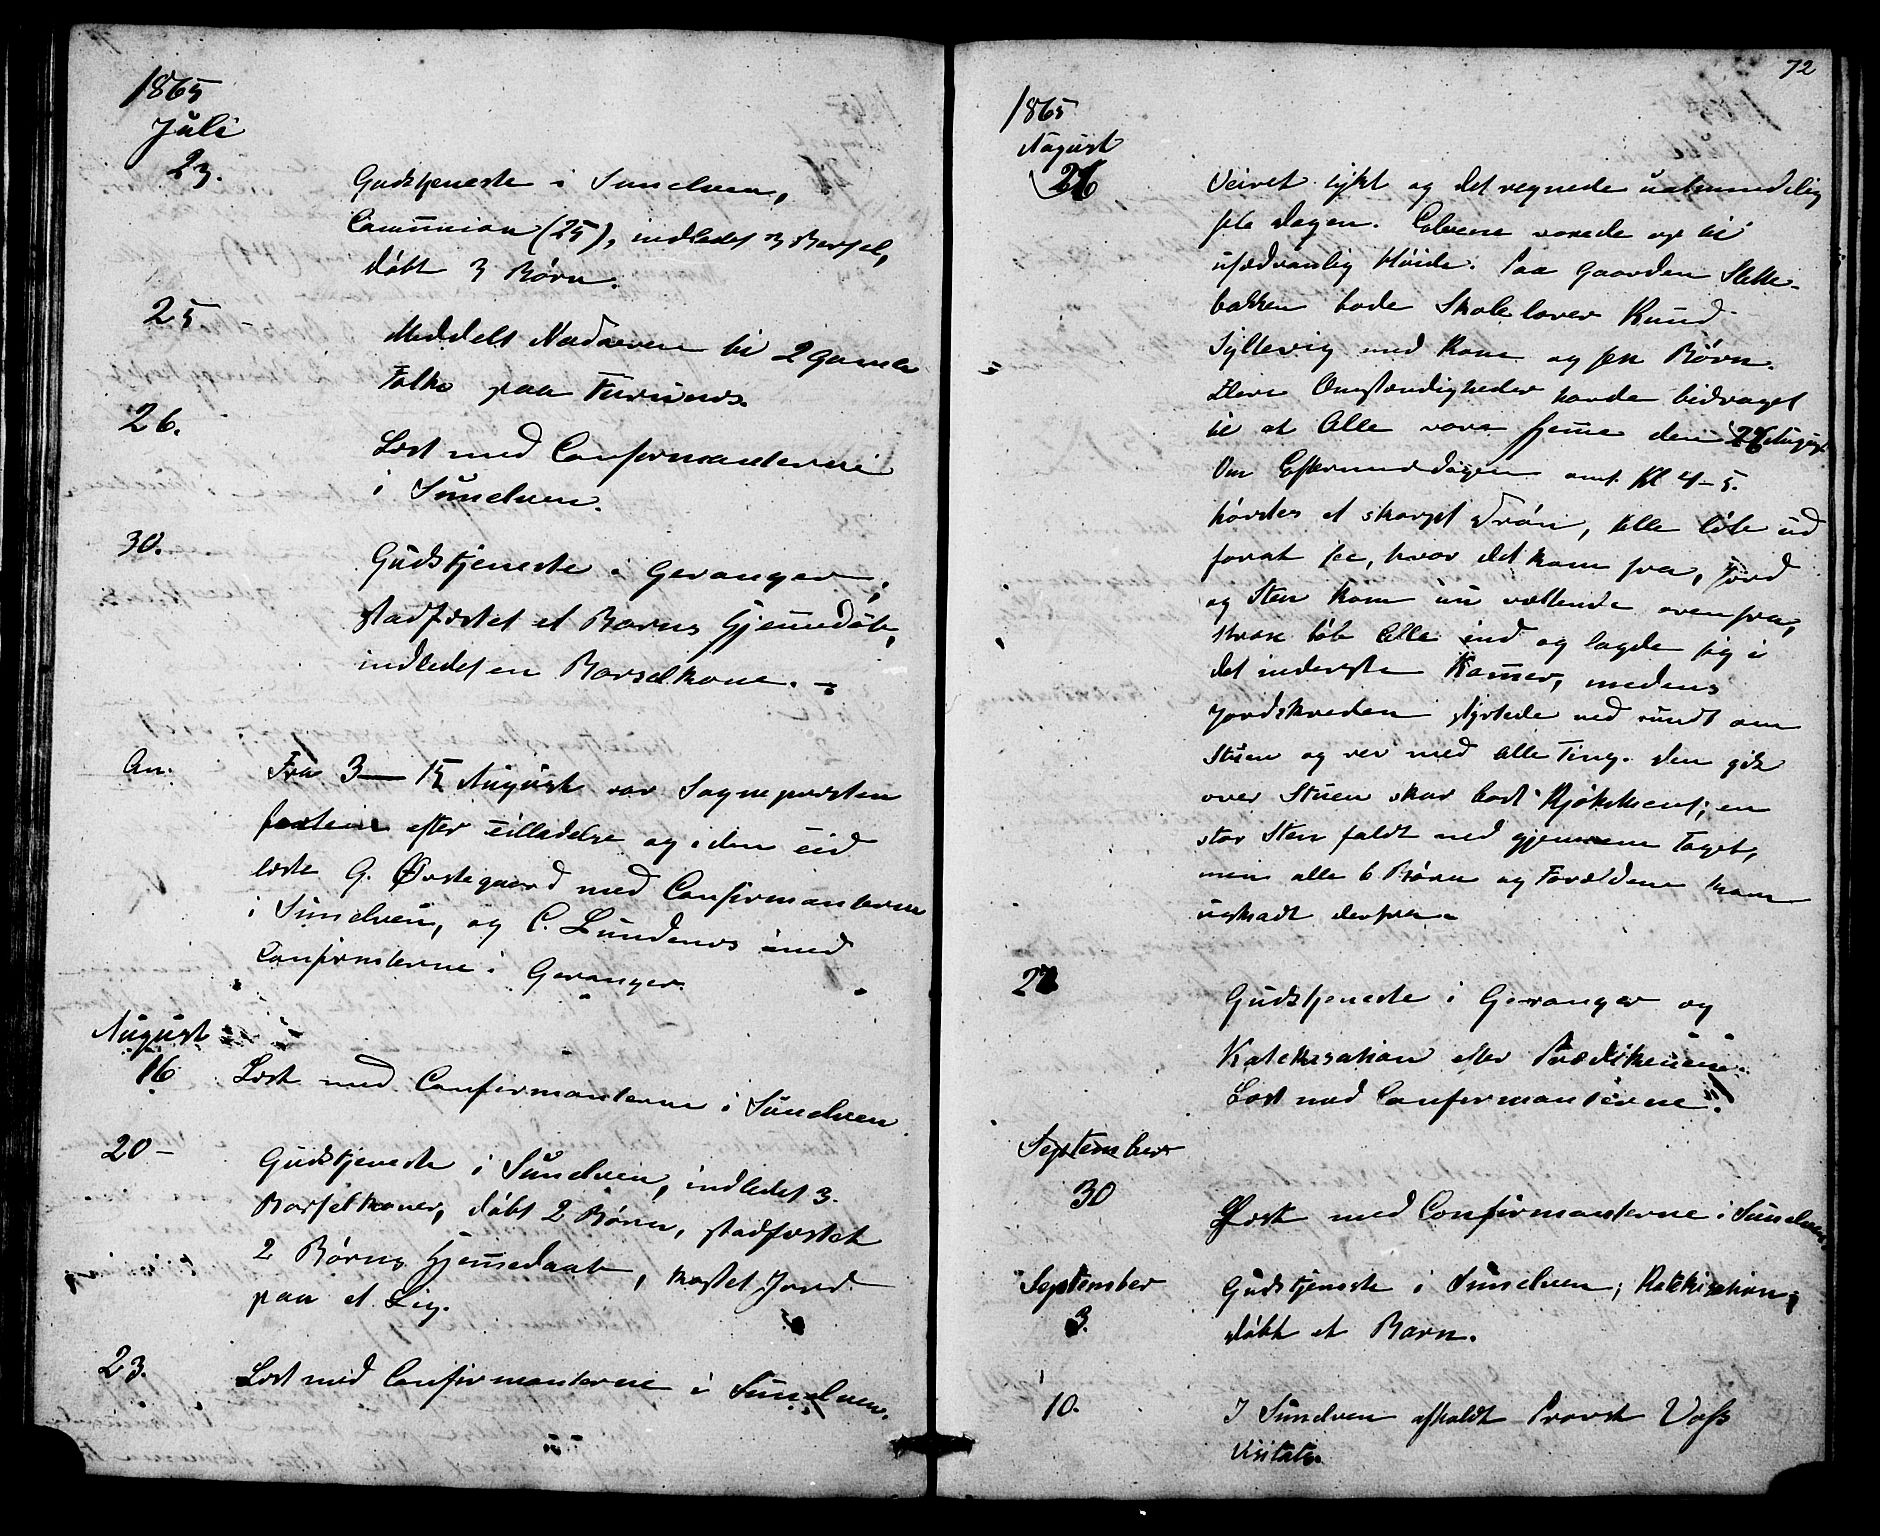 1865
Juli
23.
Gudstjeneste i Sunelven,
Communion (25), indledet 3 Barsel,
døbt 3 Børn.
25 -
Meddelt Nadveren til 2 gamle
Folk paa Furunes.
26.
Læst med Confirmanterne
i Sunelven.
30.
Gudstjeneste i Geranger,
stadfæstet et Barns Hjemmedøb,
indledet en Barselkone. -
An.
Fra 3 — 15 August var Sognepresten
efter Tilladelse og i den Tid
læste G. Ørstegaard med Confirmanterne
i Sunelven, og C. Lundenes med
Confirmterne i Geranger.
August
16
Læst med Confirmanterne i Sunelven.
20 -
Gudstjeneste i Sunelven, indledet 3
Barselkoner, døbt 2 Børn, stadfæstet
2 Børns Hjemmedaab, kastet Jord
paa et Lig.
23.
Læst med Confirmanterne i Sunelven.
72
1865
August
26
Veiret tykt og det regnede ualmindelig
hele Dagen. Elvene voxede op til
usædvanlig Høide. Paa Gaarden Slette-
bakken bode Skolelærer Knud
Syltevig med Kone og sex Børn.
Flere Omstændigheder havde bidraget
til at Alle vare hjemme den 26 August
Om Eftermiddagen omt. Kl 4-5.
hørdes et skarpt Drøn, Alle løbe ud
forat see, hvor det kom fra, Jord
og Sten kom nu væltende ovenfra,
strax løb Alle ind og lagde sig i
det inderste Kammer, medens
Jordskreden styrtede ned rundt om
Stuen og rev med alle Ting. Den gik
over Stuen skar bort Kjøkkenet; en
stor Sten faldt ned gjennem Taget,
men alle 6 Børn og Forældrene kom
uskadt derfra.
27
Gudstjeneste i Geranger og
Katekisation efter Prædikenen.
Læst med Confirmanterne.
September
30
Læst med Confirmanterne i Sunelven.
September
3.
Gudstjeneste i Sunelven; Katekisation;
døbt et Barn.
10.
I Sunelven afholdt Provst Voss
Visitats.